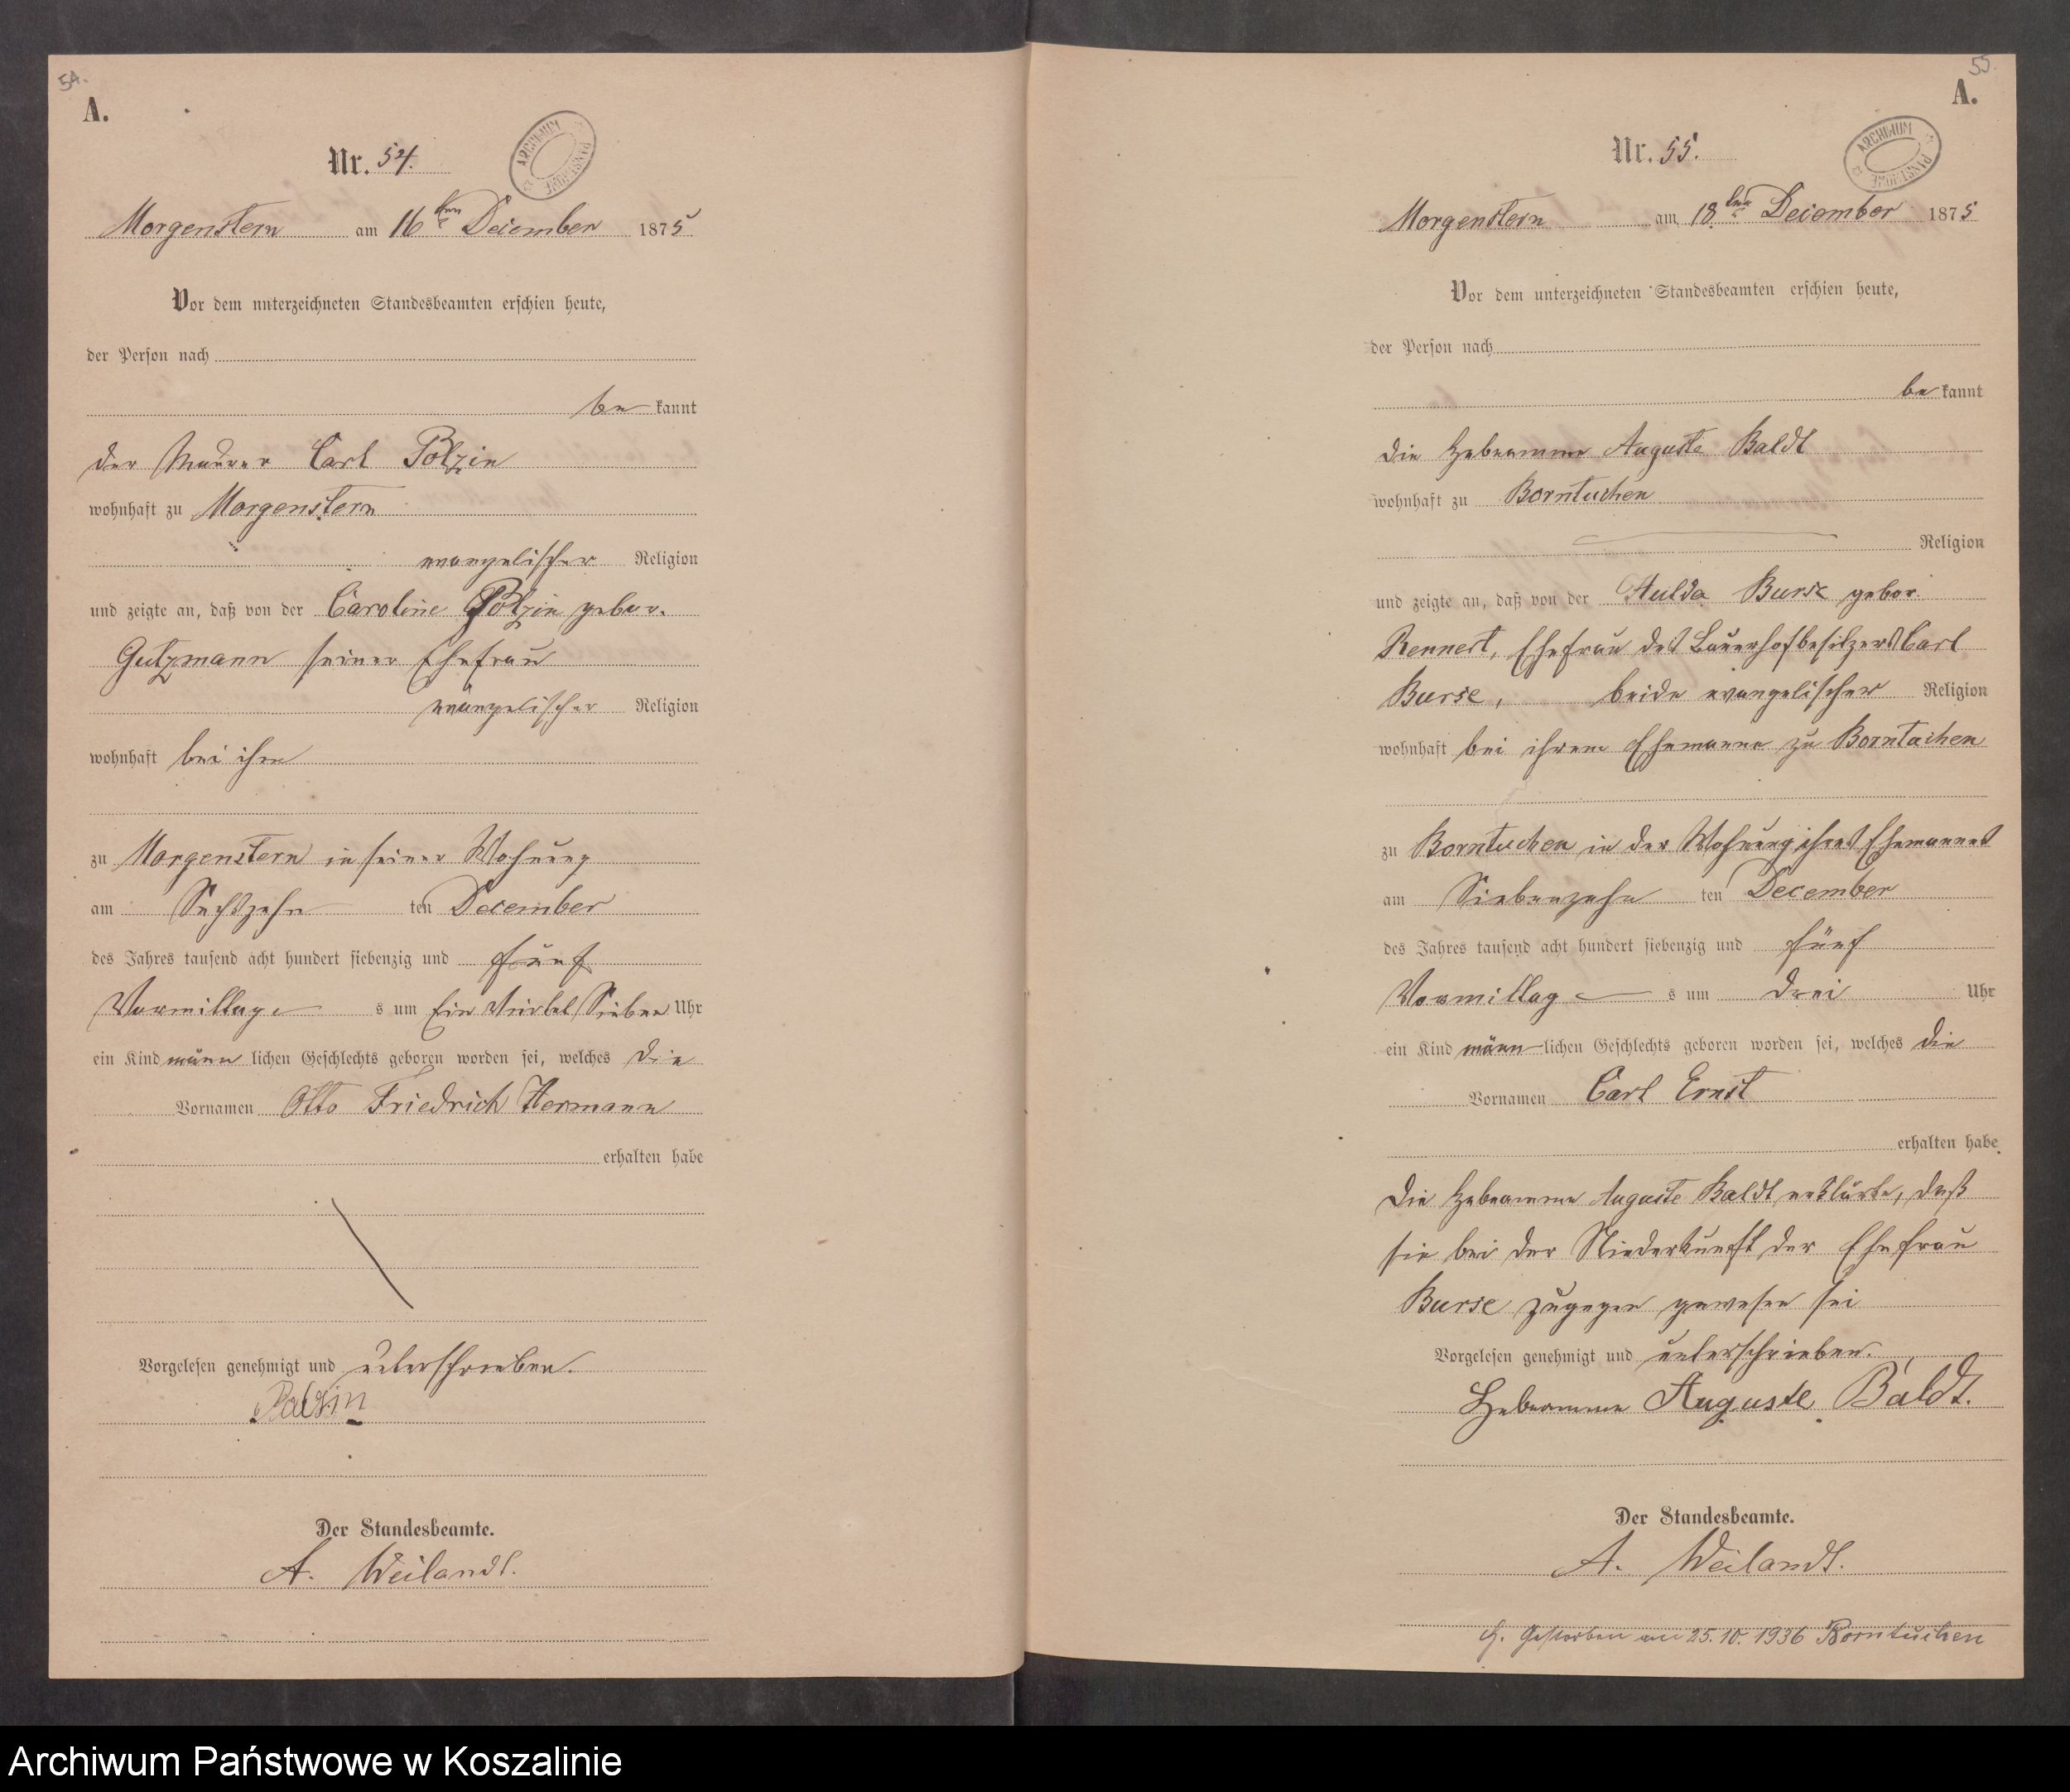 54.
A.
Nr. 54.
ARCHIWUM PAŃSTWOWE
Morgenstern am 16ten December 1875
Vor dem unterzeichneten Standesbeamten erschien heute,
der Person nach
be kannt
der Maurer Carl Polzin
wohnhaft zu Morgenstern
evangelischer Religion
und zeigte an, daß von der Caroline Polzin gebor.
Gutzmann seiner Ehefrau
evangelischer Religion
wohnhaft bei ihm
zu Morgenstern in seiner Wohnung
am Sechszehn ten December
des Jahres tausend acht hundert siebenzig und fünf
Vormittag s um Ein Viertel Sieben Uhr
ein Kind männ lichen Geschlechts geboren worden sei, welches die
Vornamen Otto Friedrich Hermann
erhalten habe
Vorgelesen genehmigt und unterschrieben.
Polzin
Der Standesbeamte.
A. Weilandt.
55.
A.
Nr. 55.
ARCHIWUM PAŃSTWOWE
Morgenstern am 18ten December 1875
Vor dem unterzeichneten Standesbeamten erschien heute,
der Person nach
be kannt
die Hebeamme Auguste Baldt
wohnhaft zu Borntuchen
Religion
und zeigte an, daß von der Hulda Burse gebor.
Rennert, Ehefrau des Bauerhofbesitzers Carl
Burse, beide evangelischer Religion
wohnhaft bei ihrem Ehemanne zu Borntuchen
zu Borntuchen in der Wohnung ihres Ehemannes
am Siebenzehn ten December
des Jahres tausend acht hundert siebenzig und fünf
Vormittag s um drei Uhr
ein Kind männ lichen Geschlechts geboren worden sei, welches die
Vornamen Carl Ernst
erhalten habe
Die Hebeamme Auguste Baldt erklärte, daß
sie bei der Niederkunft der Ehefrau
Burse zugegen gewesen sei
Vorgelesen genehmigt und unterschrieben.
Hebeamme Auguste Baldt.
Der Standesbeamte.
A. Weilandt.
Gestorben am 25.10.1936 Borntuchen
Archiwum Państwowe w Koszalinie